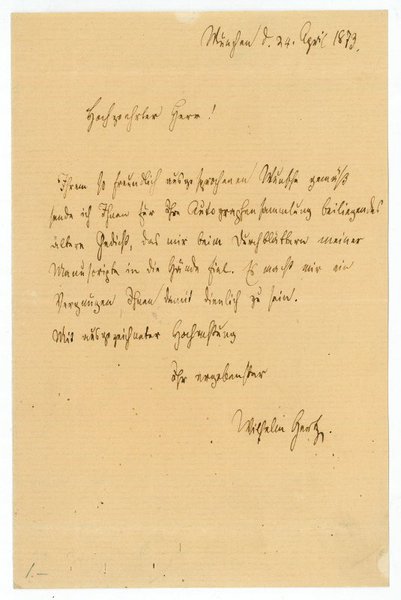 München d. 24. April 1873.
Hochgeehrter Herr!
Ihrem so freundlich ausgesprochenen Wunsche gemäß
sende ich Ihnen für Ihre Autographensammlung beiliegendes
ältere Gedicht, das mir beim Durchblättern meiner
Manuscripte in die Hände fiel. Es macht mir ein
Vergnügen, Ihnen damit dienlich zu sein.
Mit ausgezeichneter Hochachtung
Ihr ergebenster
Wilhelm Hertz.
1.—